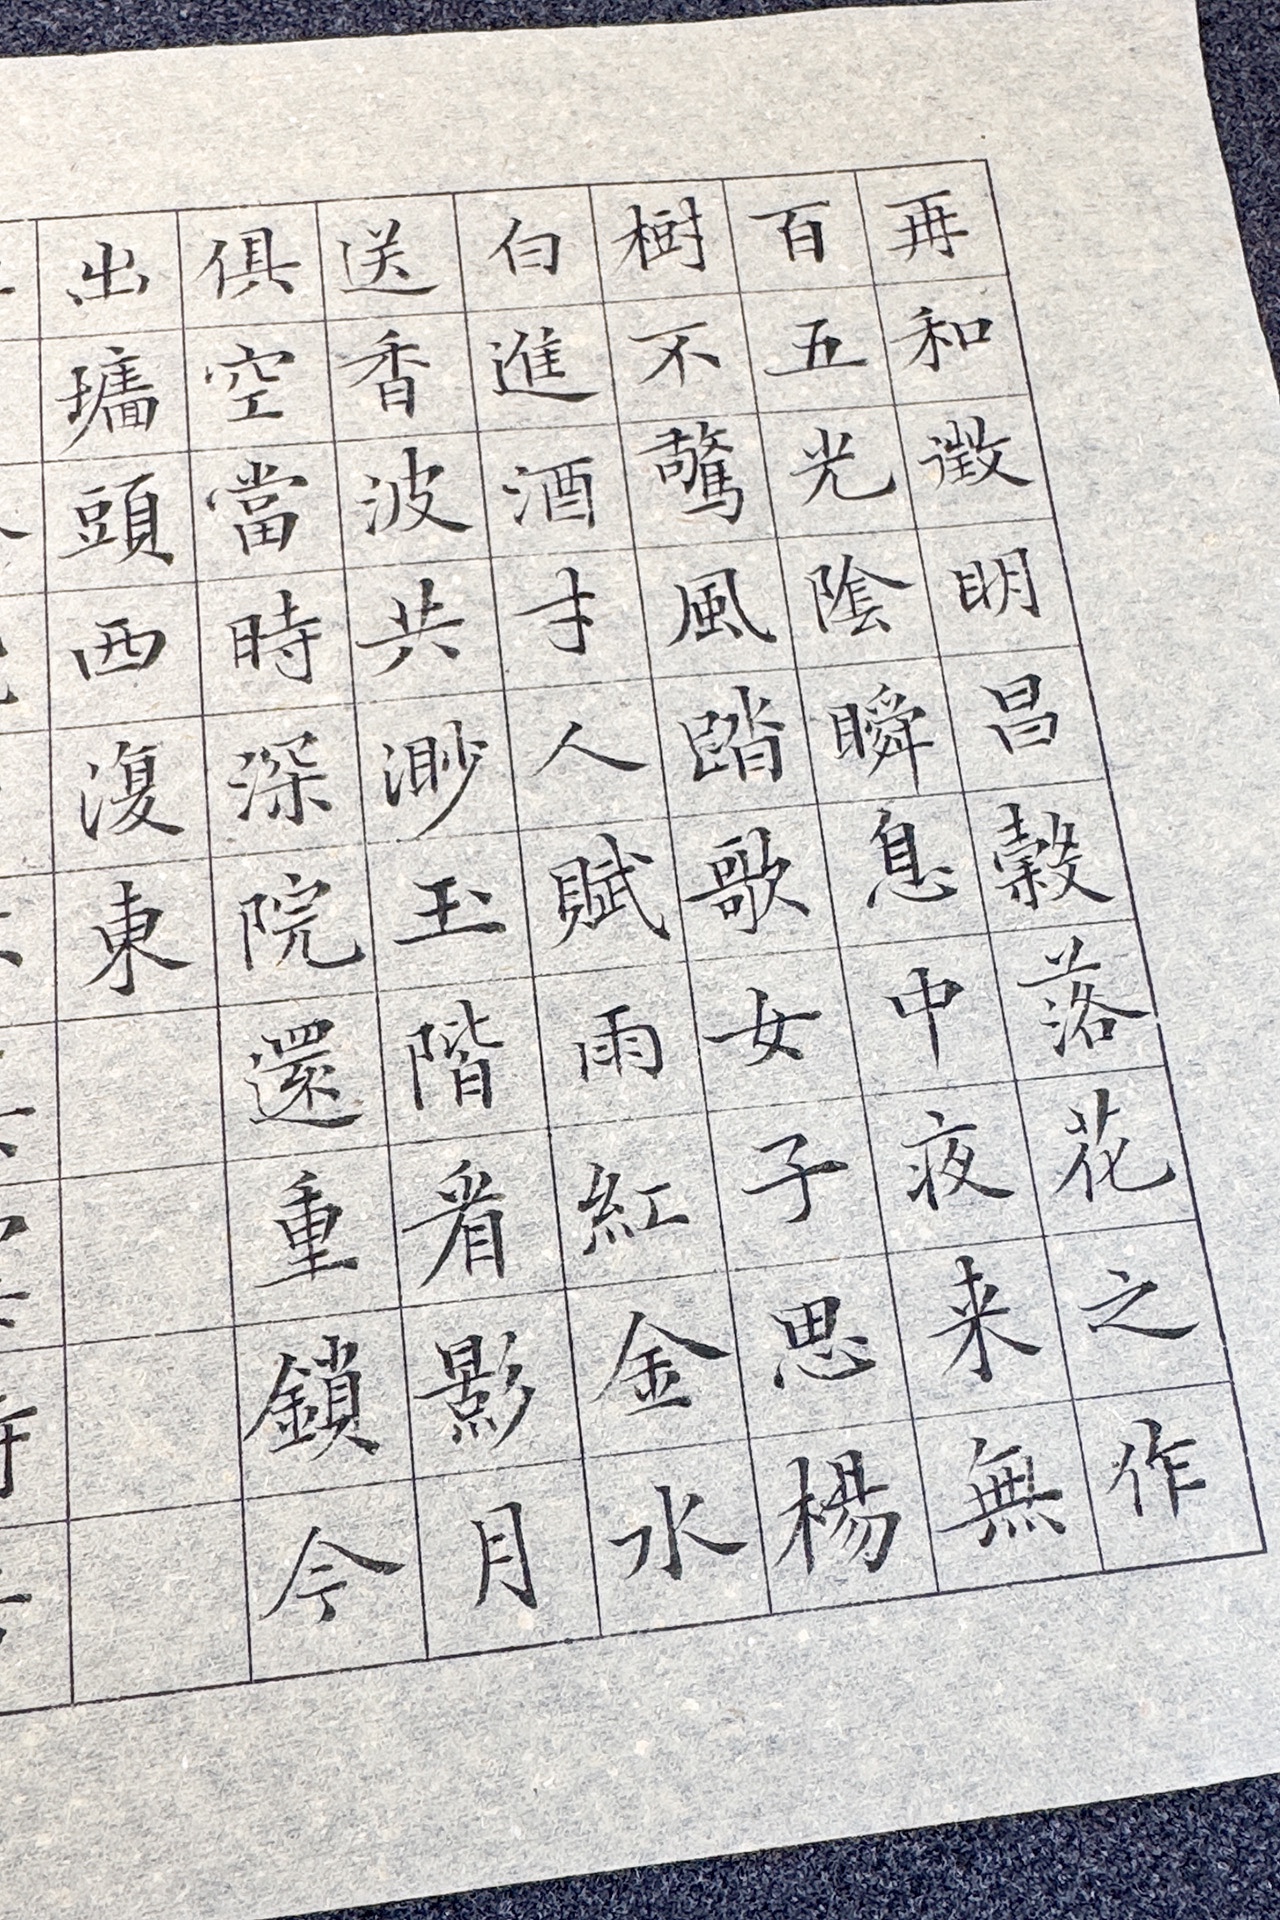 再和徵明昌穀落花之作
百五光陰瞬息中夜来無
樹不驚風踏歌女子思楊
白進酒才人賦雨紅金水
送香波共渺玉階看影月
俱空當時深院還重鎖今
出墻頭西復東